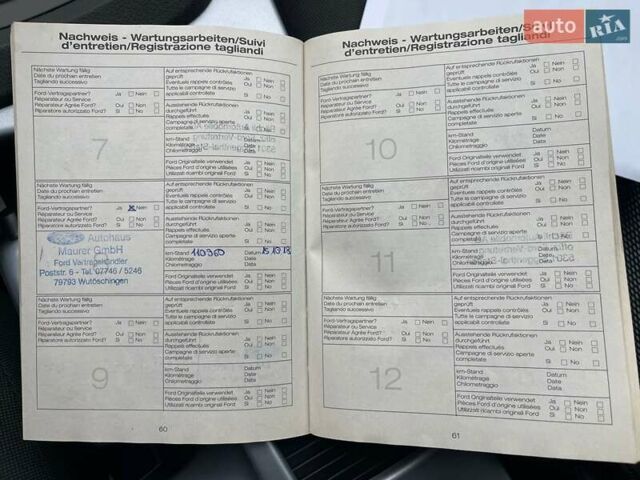 auto RIA
.com
Nachweis - Wartungsarbeiten/Suivi
d'entretien/Registrazione tagliandi
Nächste Wartung fällig
Date du prochain entretien
Tagliando successivo
Auf entsprechende Rückrufaktionen Ja Nein
geprüft
Eventuels rappels contrôlés Oui Non
Tutte le campagne di servizio
applicabili controllate Si No
Ford-Vertragspartner? Ja Nein
Réparateur ou Service
Réparateur Agréé Ford? Oui Non
Riparatore autorizzato Ford? Si No
Ausstehende Rückrufaktionen
durchgeführt Ja Nein
Rappels effectués Oui Non
Campagne di servizio aperte
completate Si No
7
km-Stand Datum
Kilométrage Date
Chilometraggio Data
Ford Originalteile verwendet Ja Nein
Pièces Ford d'origine utilisées Oui Non
Utilizzati ricambi original Ford Si No
Nächste Wartung fällig
Date du prochain entretien
Tagliando successivo
Auf entsprechende Rückrufaktionen
geprüft Ja Nein
Eventuels rappels contrôlés Oui Non
Tutte le campagne di servizio
applicabili controllate Si No
Ford-Vertragspartner? Ja Nein
Réparateur ou Service
Réparateur Agréé Ford? Oui Non
Riparatore autorizzato Ford? Si No
Ausstehende Rückrufaktionen
durchgeführt Ja Nein
Rappels effectués Oui Non
Campagne di servizio aperte
completate Si No
Autohaus
Maurer GmbH
Ford Vertragshändler
Poststr. 6 - Tel. 07746 / 5246
79793 Wutöschingen
km-Stand 110360 Datum
Kilométrage Date
Chilometraggio Data
Ford Originalteile verwendet Ja Nein
Pièces Ford d'origine utilisées Oui Non
Utilizzati ricambi original Ford Si No
Nächste Wartung fällig
Date du prochain entretien
Tagliando successivo
Auf entsprechende Rückrufaktionen
geprüft Ja Nein
Eventuels rappels contrôlés Oui Non
Tutte le campagne di servizio
applicabili controllate Si No
Ford-Vertragspartner? Ja Nein
Réparateur ou Service
Réparateur Agréé Ford? Oui Non
Riparatore autorizzato Ford? Si No
Ausstehende Rückrufaktionen
durchgeführt Ja Nein
Rappels effectués Oui Non
Campagne di servizio aperte
completate Si No
9
km-Stand Datum
Kilométrage Date
Chilometraggio Data
Ford Originalteile verwendet Ja Nein
Pièces Ford d'origine utilisées Oui Non
Utilizzati ricambi original Ford Si No
60
Nachweis - Wartungsarbeiten/S
d'entretien/Registrazione tagliandi
Nächste Wartung fällig
Date du prochain entretien
Tagliando successivo
Auf entsprechende Rückrufaktionen
geprüft Ja Nein
Eventuels rappels contrôlés Oui Non
Tutte le campagne di servizio
applicabili controllate Si No
Ford-Vertragspartner? Ja Nein
Réparateur ou Service
Réparateur Agréé Ford? Oui Non
Riparatore autorizzato Ford? Si No
Ausstehende Rückrufaktionen
durchgeführt Ja Nein
Rappels effectués Oui Non
Campagne di servizio aperte
completate Si No
10
km-Stand Datum
Kilométrage Date
Chilometraggio Data
Ford Originalteile verwendet Ja Nein
Pièces Ford d'origine utilisées Oui Non
Utilizzati ricambi original Ford Si No
Nächste Wartung fällig
Date du prochain entretien
Tagliando successivo
Auf entsprechende Rückrufaktionen
geprüft Ja Nein
Eventuels rappels contrôlés Oui Non
Tutte le campagne di servizio
applicabili controllate Si No
Ford-Vertragspartner? Ja Nein
Réparateur ou Service
Réparateur Agréé Ford? Oui Non
Riparatore autorizzato Ford? Si No
Ausstehende Rückrufaktionen
durchgeführt Ja Nein
Rappels effectués Oui Non
Campagne di servizio aperte
completate Si No
11
km-Stand Datum
Kilométrage Date
Chilometraggio Data
Ford Originalteile verwendet Ja Nein
Pièces Ford d'origine utilisées Oui Non
Utilizzati ricambi original Ford Si No
Nächste Wartung fällig
Date du prochain entretien
Tagliando successivo
Auf entsprechende Rückrufaktionen
geprüft Ja Nein
Eventuels rappels contrôlés Oui Non
Tutte le campagne di servizio
applicabili controllate Si No
Ford-Vertragspartner? Ja Nein
Réparateur ou Service
Réparateur Agréé Ford? Oui Non
Riparatore autorizzato Ford? Si No
Ausstehende Rückrufaktionen
durchgeführt Ja Nein
Rappels effectués Oui Non
Campagne di servizio aperte
completate Si No
12
km-Stand Datum
Kilométrage Date
Chilometraggio Data
Ford Originalteile verwendet Ja Nein
Pièces Ford d'origine utilisées Oui Non
Utilizzati ricambi original Ford Si No
61